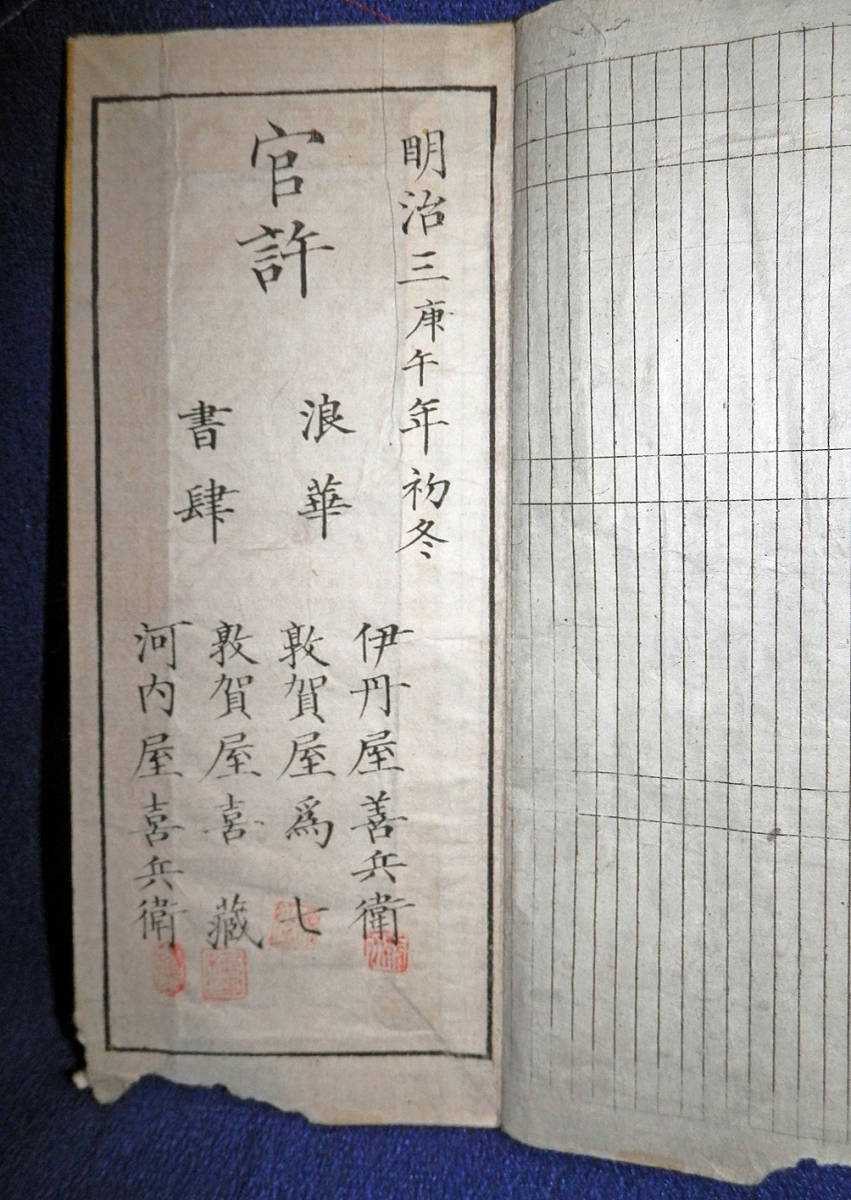 明治三庚午年初冬
官許
浪華
書肆
伊丹屋善兵衛
敦賀屋爲七
敦賀屋喜藏
河内屋喜兵衛